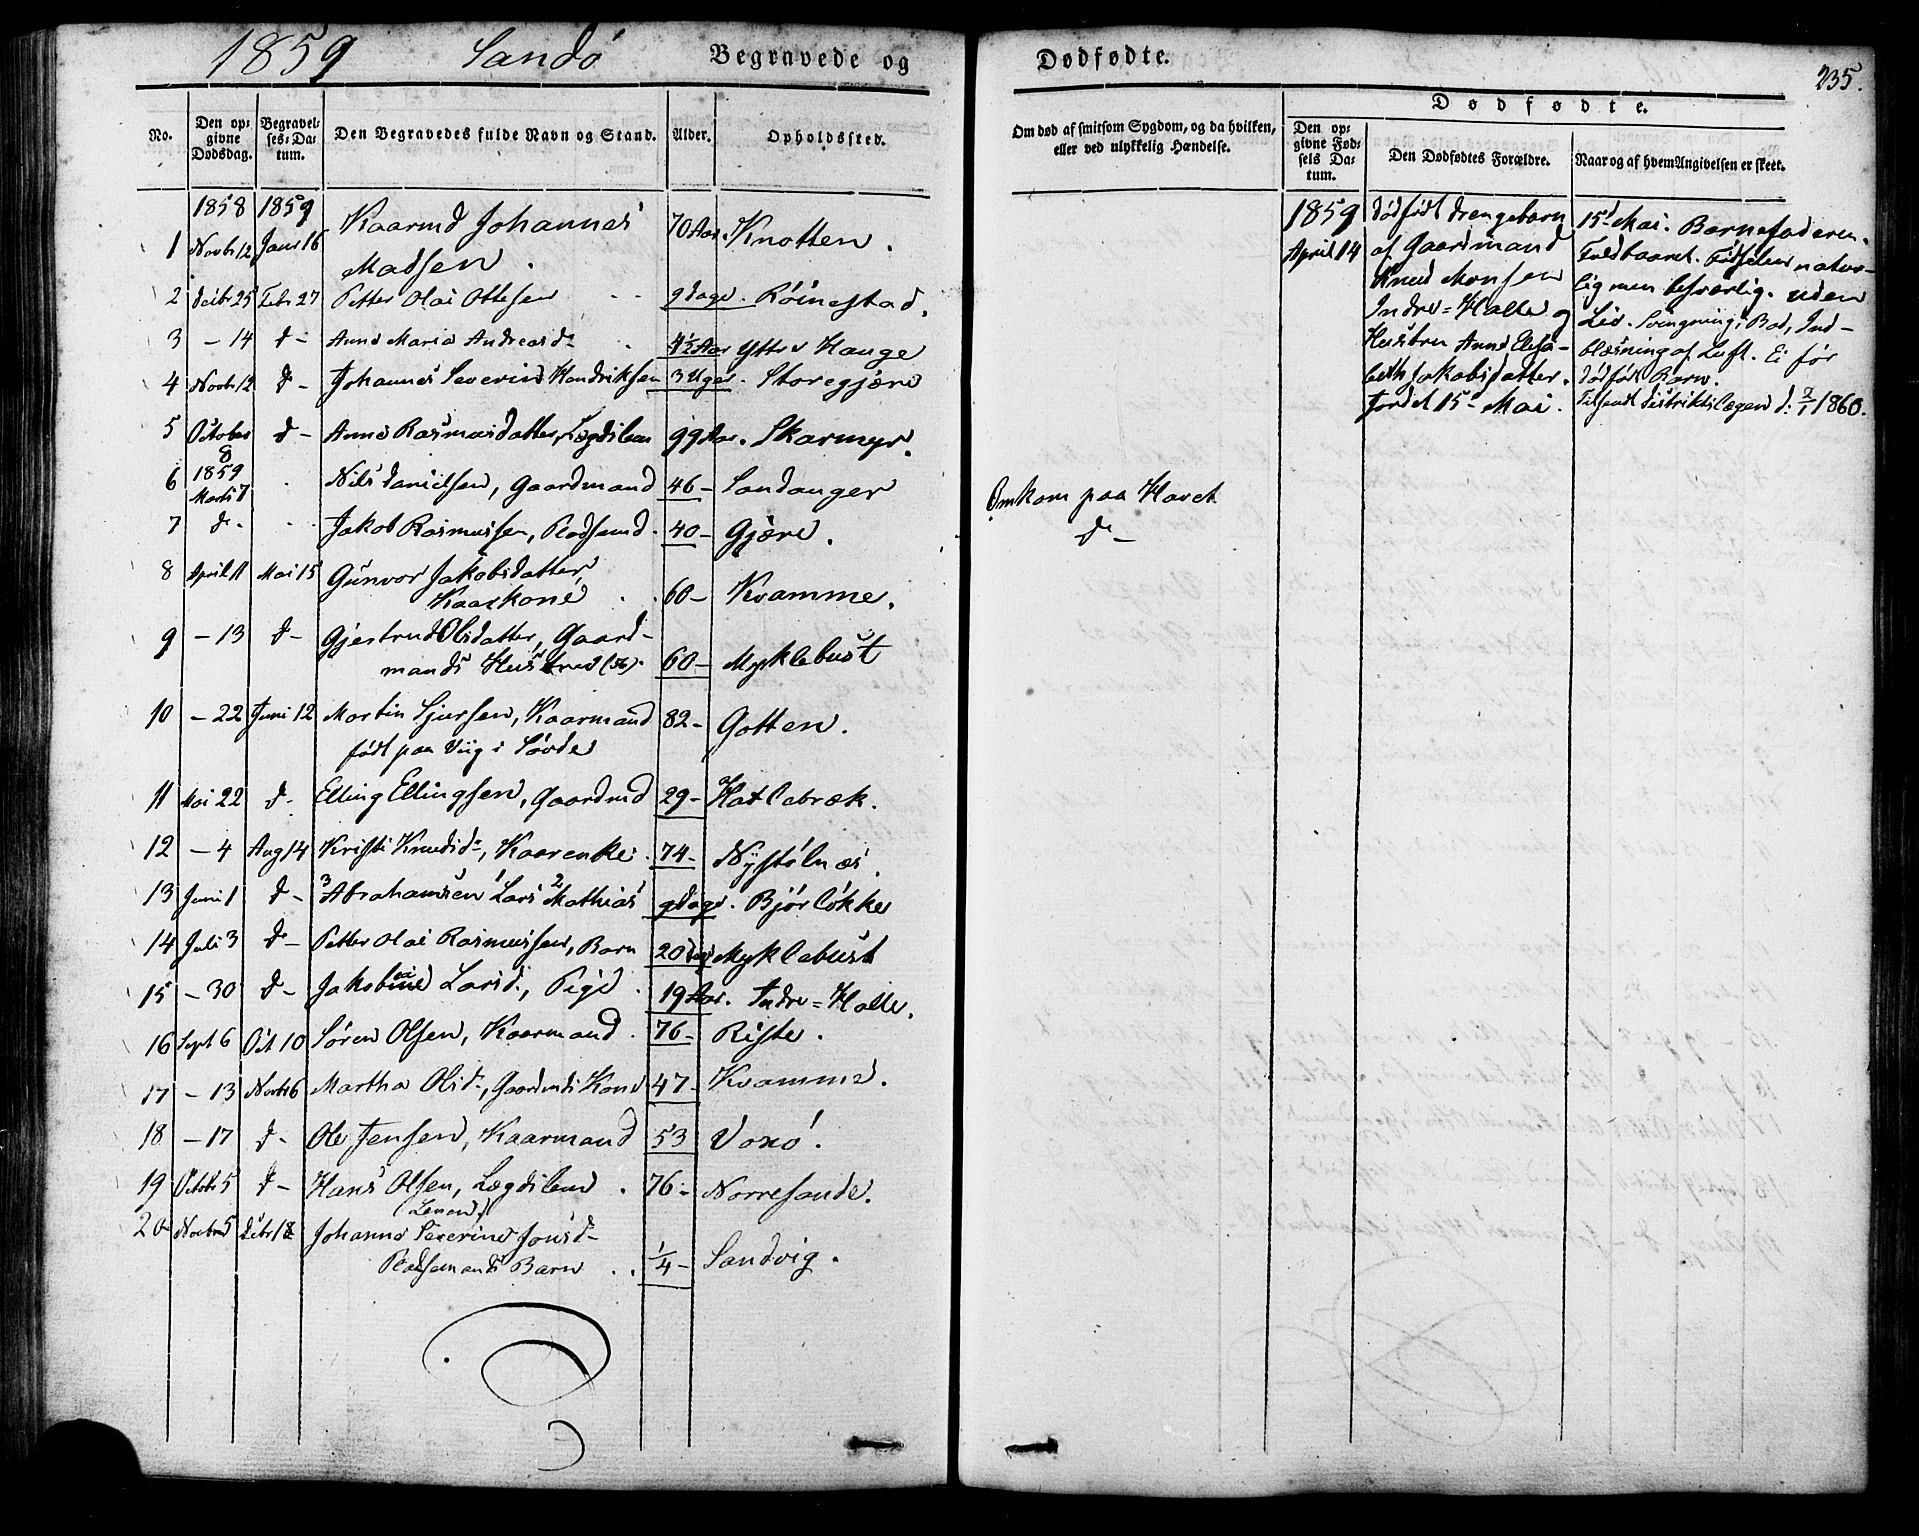 1859 Sandö Begravede og
No. Den opgivne Dødsdag. Begravelses-Datum. Den Begravedes fulde Navn og Stand. Alder. Opholdssted.
1858 1859
1 Novbr 12 Janr 16 Kaarmd Johannes Madsen. 70 Aar. Knotten.
2 Decbr 25 Febr 27 Petter Olai Ottesen 9 dage. Röinestad.
3 – 14 d– Anne Maria Andreasdr 4½ Aar Yttre Hauge
4 Novbr 12 d– Johannes Severin Hendriksen 3 Uger. Storegjære
5 October 8 d– Anne Rasmusdatter, Lægdslem 99 Aar. Skarmyr.
1859
6 Marts 7 Nils Danielsen, Gaardmand 46– Sandanger
7 d– Jakob Rasmussen, Pladsmd. 40– Gjære.
8 April 11 Mai 15 Gunvor Jakobsdatter, Kaarkone 60– Kvamme.
9 – 13 d– Gjertrud Olsdatter, Gaardmands Hustru 60– Myklebust
10 – 22 Juni 12 Martin Sjursen, Kaarmand 82– Gotten.
født paa Viig i Søvde
11 Mai 22 d– Elling Ellingsen, Gaardmd 29– Hatlebræk.
12 – 4 Aug 14 Kristi Knudsdr, Kaarenke. 74– Nystölnæs.
13 Juni 1 d– 3 Abrahamsen 1 Lars 2 Mathias 9 dage. Bjørløkke
14 Juli 3 d– Petter Olai Rasmussen, Barn 20 Myklebust
15 – 30 d– Larsd., Pige 19 Aar. Indre=Halle.
16 Sept 6 Oct 10 Søren Olsen, Kaarmand. 76– Riste.
17 – 13 Novbr 6 Martha Olsdr, Gaardmds Kone 47– Kvamme.
18 – 17 d– Ole Jensen, Kaarmand 53 Voxö.
19 Octobr 5 d– Hans Olsen, Lægdslem. 76– Norresande.
20 Novbr 5 Decbr 18 Johanne Severine Jonsd– Pladsemands Barn ¼– Sandvig.
Dødfødte. 235.
Om død af smitsom Sygdom, og da hvilken, eller ved ulykkelig Hændelse.
Dødfødte.
Den opgivne Fødsels Datum. Den Dødfødtes Forældre. Naar og af hvem Angivelsen er skeet.
Omkom paa Havet
d–
1859
April 14
dødfødt drengebarn
af Gaardmand
Knud Monsen
Indre=Halle og
Hustru Anne Elisa-
beth Jakobsdatter.
Jordet 15de Mai.
15de Mai. Barnefaderen.
Fuldbaaret. Fødselen natur-
lig men besværlig. uden
Liv. Svingning, Bad, Ind-
blæsning af Luft. Ei før
dødfødt Barn.
Tilsendt Distriktslægen d: 2/1 1860.